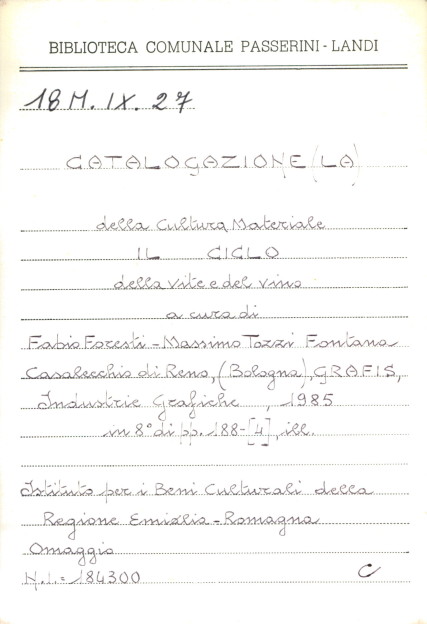 BIBLIOTECA COMUNALE PASSERINI-LANDI
18 M. IX. 27
CATALOGAZIONE (LA)
della Cultura Materiale
IL CICLO
della vite e del vino
a cura di
Fabio Foresti - Massimo Tozzi Fontana
Casalecchio di Reno, (Bologna), GRAFIS,
Industrie Grafiche , 1985
in 8° di pp. 188-[4], ill.
Istituto per i Beni Culturali della
Regione Emilia-Romagna
Omaggio
N.I.= 184300 C